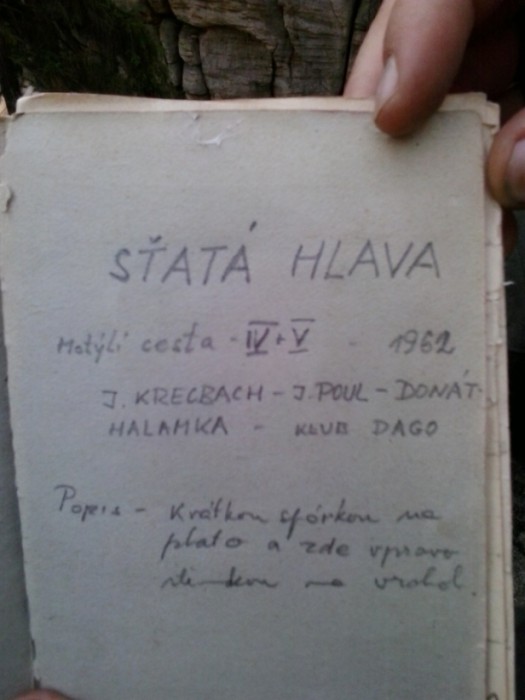 SŤATÁ HLAVA
Motýlí cesta - IV + V - 1962
J. KRECBACH - J. POUL - DONÁT -
HALAMKA - KLUB DAGO
Popis - Krátkou spárkou na
plato a zde vpravo
na vrchol.